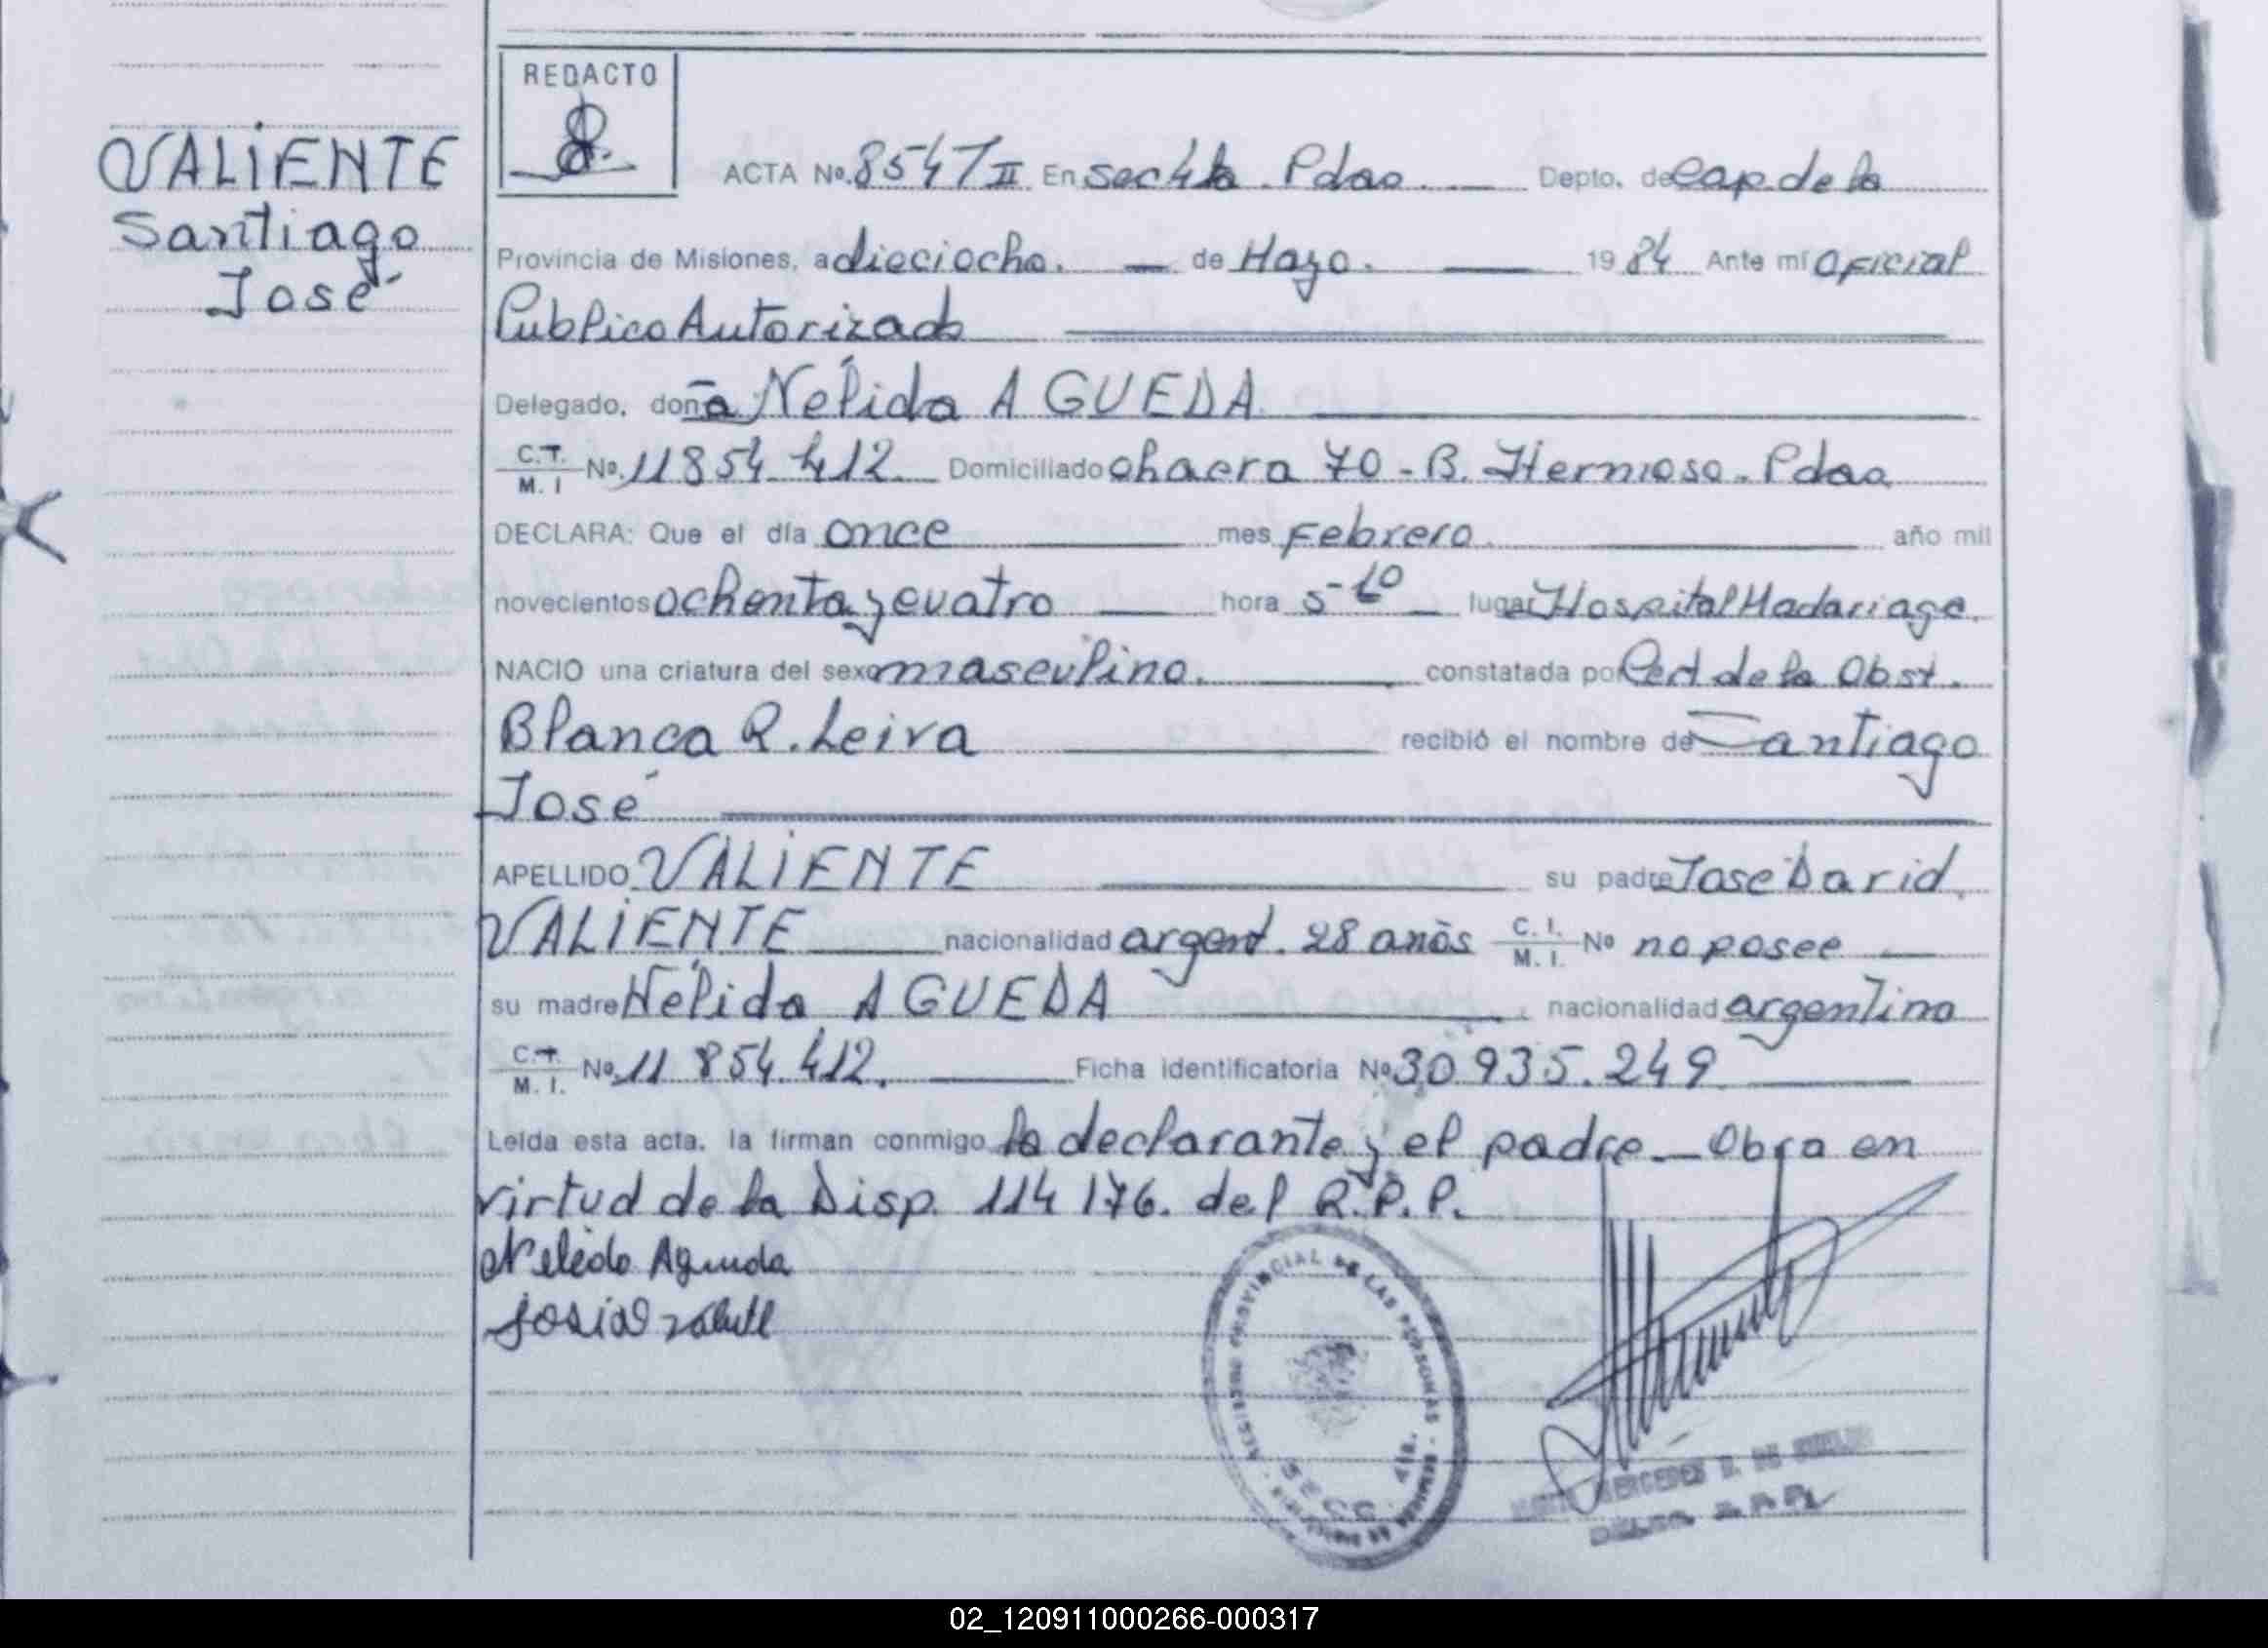 VALIENTE
Santiago
José
REDACTO
ACTA Nº. 8547 II En secc 4ta Pdas. Depto. de Cap. de la
Provincia de Misiones, a dieciocho. de Mayo. 1984 Ante mí Oficial
Publico Autorizado
Delegado, doña Nélida AGUEDA
C.T. M. I Nº. 11 854 412 Domiciliado chacra 70 - B. Hermoso - Pdas
DECLARA: Que el día once mes Febrero año mil
novecientos ochenta y cuatro hora 5-10 lugar Hospital Madariaga.
NACIO una criatura del sexo masculino. constatada por Cert de la Obst.
Blanca R. Leiva recibió el nombre de Santiago
José
APELLIDO VALIENTE su padre José David
VALIENTE nacionalidad argent. 28 años C. I. M. I. Nº no posee
su madre Nélida AGUEDA nacionalidad argentina
C.I. M. I. Nº. 11 854.412. Ficha identificatoria Nº 30 935.249
Leída esta acta, la firman conmigo la declarante y el padre - Obra en
virtud de la Disp. 114 176. del R.P.P.
Nelida Agueda
REGISTRO PROVINCIAL DE LAS PERSONAS
SECC. 4ta.
MERCEDES D. DE
DELEG. R.P.P.
02_120911000266-000317